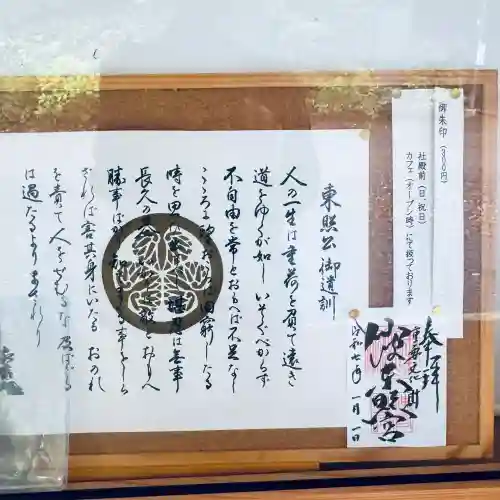 御朱印（300円）
社殿前（日、祝日）
カフェ（オープン時）にて扱っております
東照公御遺訓
人の一生は重荷を負て遠き
道をゆくが如し いそぐべからず
不自由を常とおもへば不足なし
こころに望おこらば困窮したる
時を思ひ出すべし 堪忍は無事
長久の基 いかりは敵とおもへ
勝事ばかり知りてまくる事をしら
ざれば害其身にいたる おのれ
を責て人をせむるな 及ばざる
は過たるよりまされり
奉拝
東照宮
令和七年 一月一日